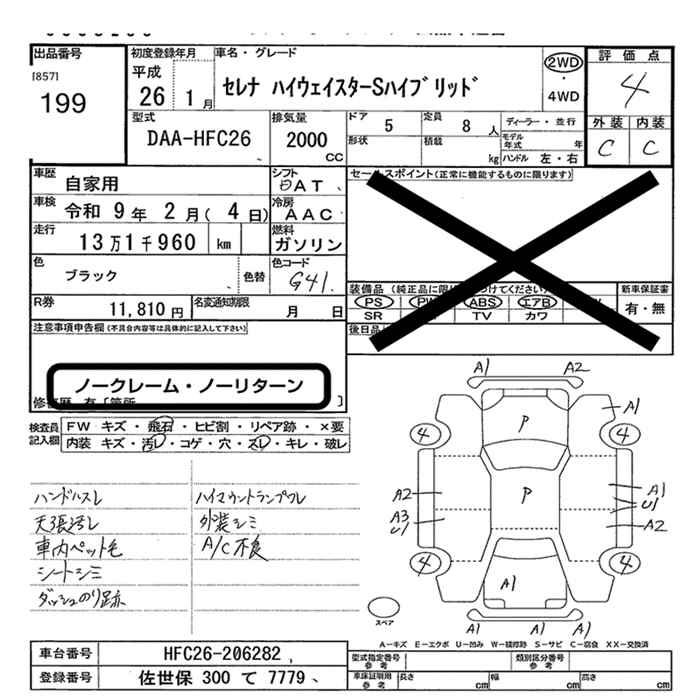 出品番号 初度登録年月 車名・グレード 評価点
[857] 平成 2WD 4
199 26 1月 セレナ ハイウェイスターSハイブリッド ・
4WD
型式 排気量 ドア 5 定員 8人 ディーラー・並行 外装 内装
DAA-HFC26 2000 CC 形状 積載 kg モデル年式 年 C C
ハンドル 左・右
車歴 自家用 シフト AT セールスポイント(正常に機能するものに限ります)
車検 令和 9年 2月(4日) 冷房 AAC
走行 13万1千960 km 燃料 ガソリン
色 ブラック 色替 色コード G41
装備品 (純正品に限 つけてください) 新車保証書
PS PW ABS エアB 有・無
SR TV カワ
R券 11,810円 名変通知期限 月 日
後日品
注意事項申告欄(不具合内容等は具体的に記入して下さい)
ノークレーム・ノーリターン
修復歴 有〔箇所 〕
検査員記入欄 FW キズ・飛石・ヒビ割・リペア跡・×要
内装 キズ・汚レ・コゲ・穴・スレ・キレ・破レ
ハンドルスレ ハイマウントランプワレ
天張汚レ 外装シミ
車内ペット毛 A/C不良
シートシミ
ダッシュのり跡
A1 A2
P A1
4 4
A2 P A1
U1
A3 A2
U1
4 4
A1
スペア A1 A1 A1
A-キズ E-エクボ U-凹み W-補修跡 S-サビ C-腐食 XX-交換済
車台番号 HFC26-206282 型式指定番号 参考 類別区分番号 参考
登録番号 佐世保 300 て 7779 車庫証明用 参考 長さ cm 幅 cm 高さ cm